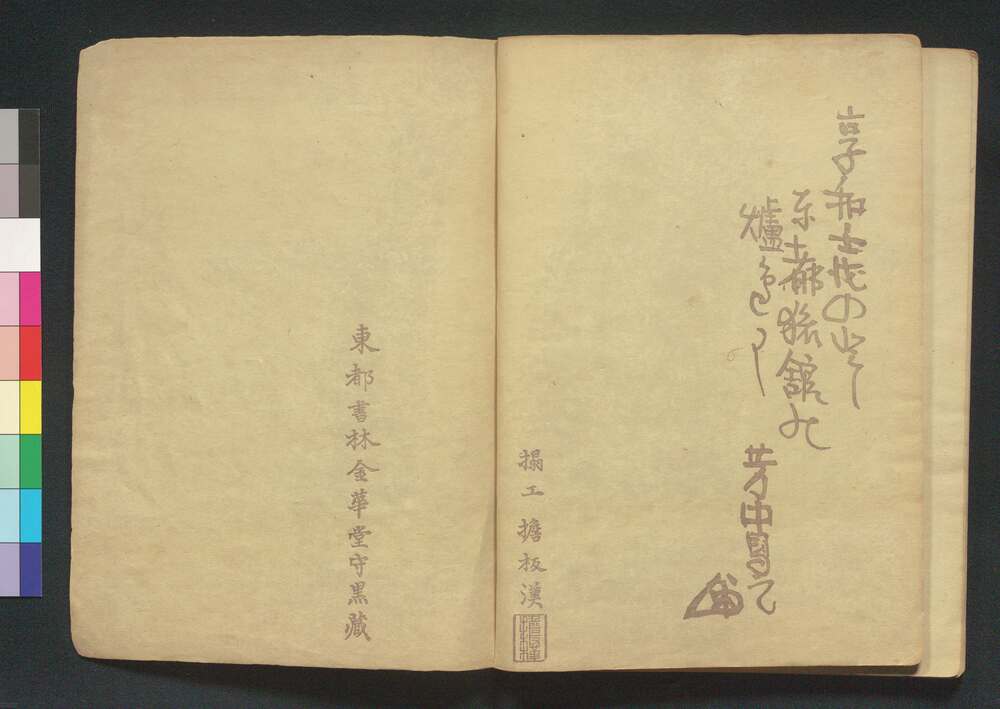 享和壬戌のとし
東都旅館の
爐邊
芳中寫之
搨工 擔板漢
東都書林金華堂守黒藏